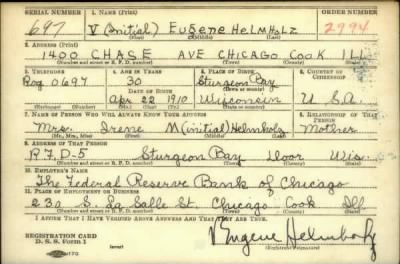 SERIAL NUMBER 1. NAME (Print) ORDER NUMBER
697 V (Initial) EUGENE HELMHOLZ 2994
(First) (Middle) (Last)
2. ADDRESS (Print)
1400 CHASE AVE CHICAGO COOK ILL
(Number and street or R. F. D. number) (Town) (County) (State)
3. TELEPHONE 4. AGE IN YEARS 5. PLACE OF BIRTH 6. COUNTRY OF CITIZENSHIP
Rog 0697 30 Sturgeon Bay
DATE OF BIRTH (Town or county)
Apr 22 1910 Wisconsin U S.A.
(Exchange) (Number) (Mo.) (Day) (Yr.) (State or country)
7. NAME OF PERSON WHO WILL ALWAYS KNOW YOUR ADDRESS 8. RELATIONSHIP OF THAT PERSON
Mrs. Irene M (initial) Helmholz Mother
(Mr., Mrs., Miss) (First) (Middle) (Last)
9. ADDRESS OF THAT PERSON
R F D-5 Sturgeon Bay Door Wis.
(Number and street or R. F. D. number) (Town) (County) (State)
10. EMPLOYER'S NAME
The Federal Reserve Bank of Chicago
11. PLACE OF EMPLOYMENT OR BUSINESS
230 S. La Salle St. Chicago Cook Ill
(Number and street or R. F. D. number) (Town) (County) (State)
I AFFIRM THAT I HAVE VERIFIED ABOVE ANSWERS AND THAT THEY ARE TRUE.
REGISTRATION CARD
D. S. S. Form 1 (over)
V Eugene Helmholz
(Registrant's signature)